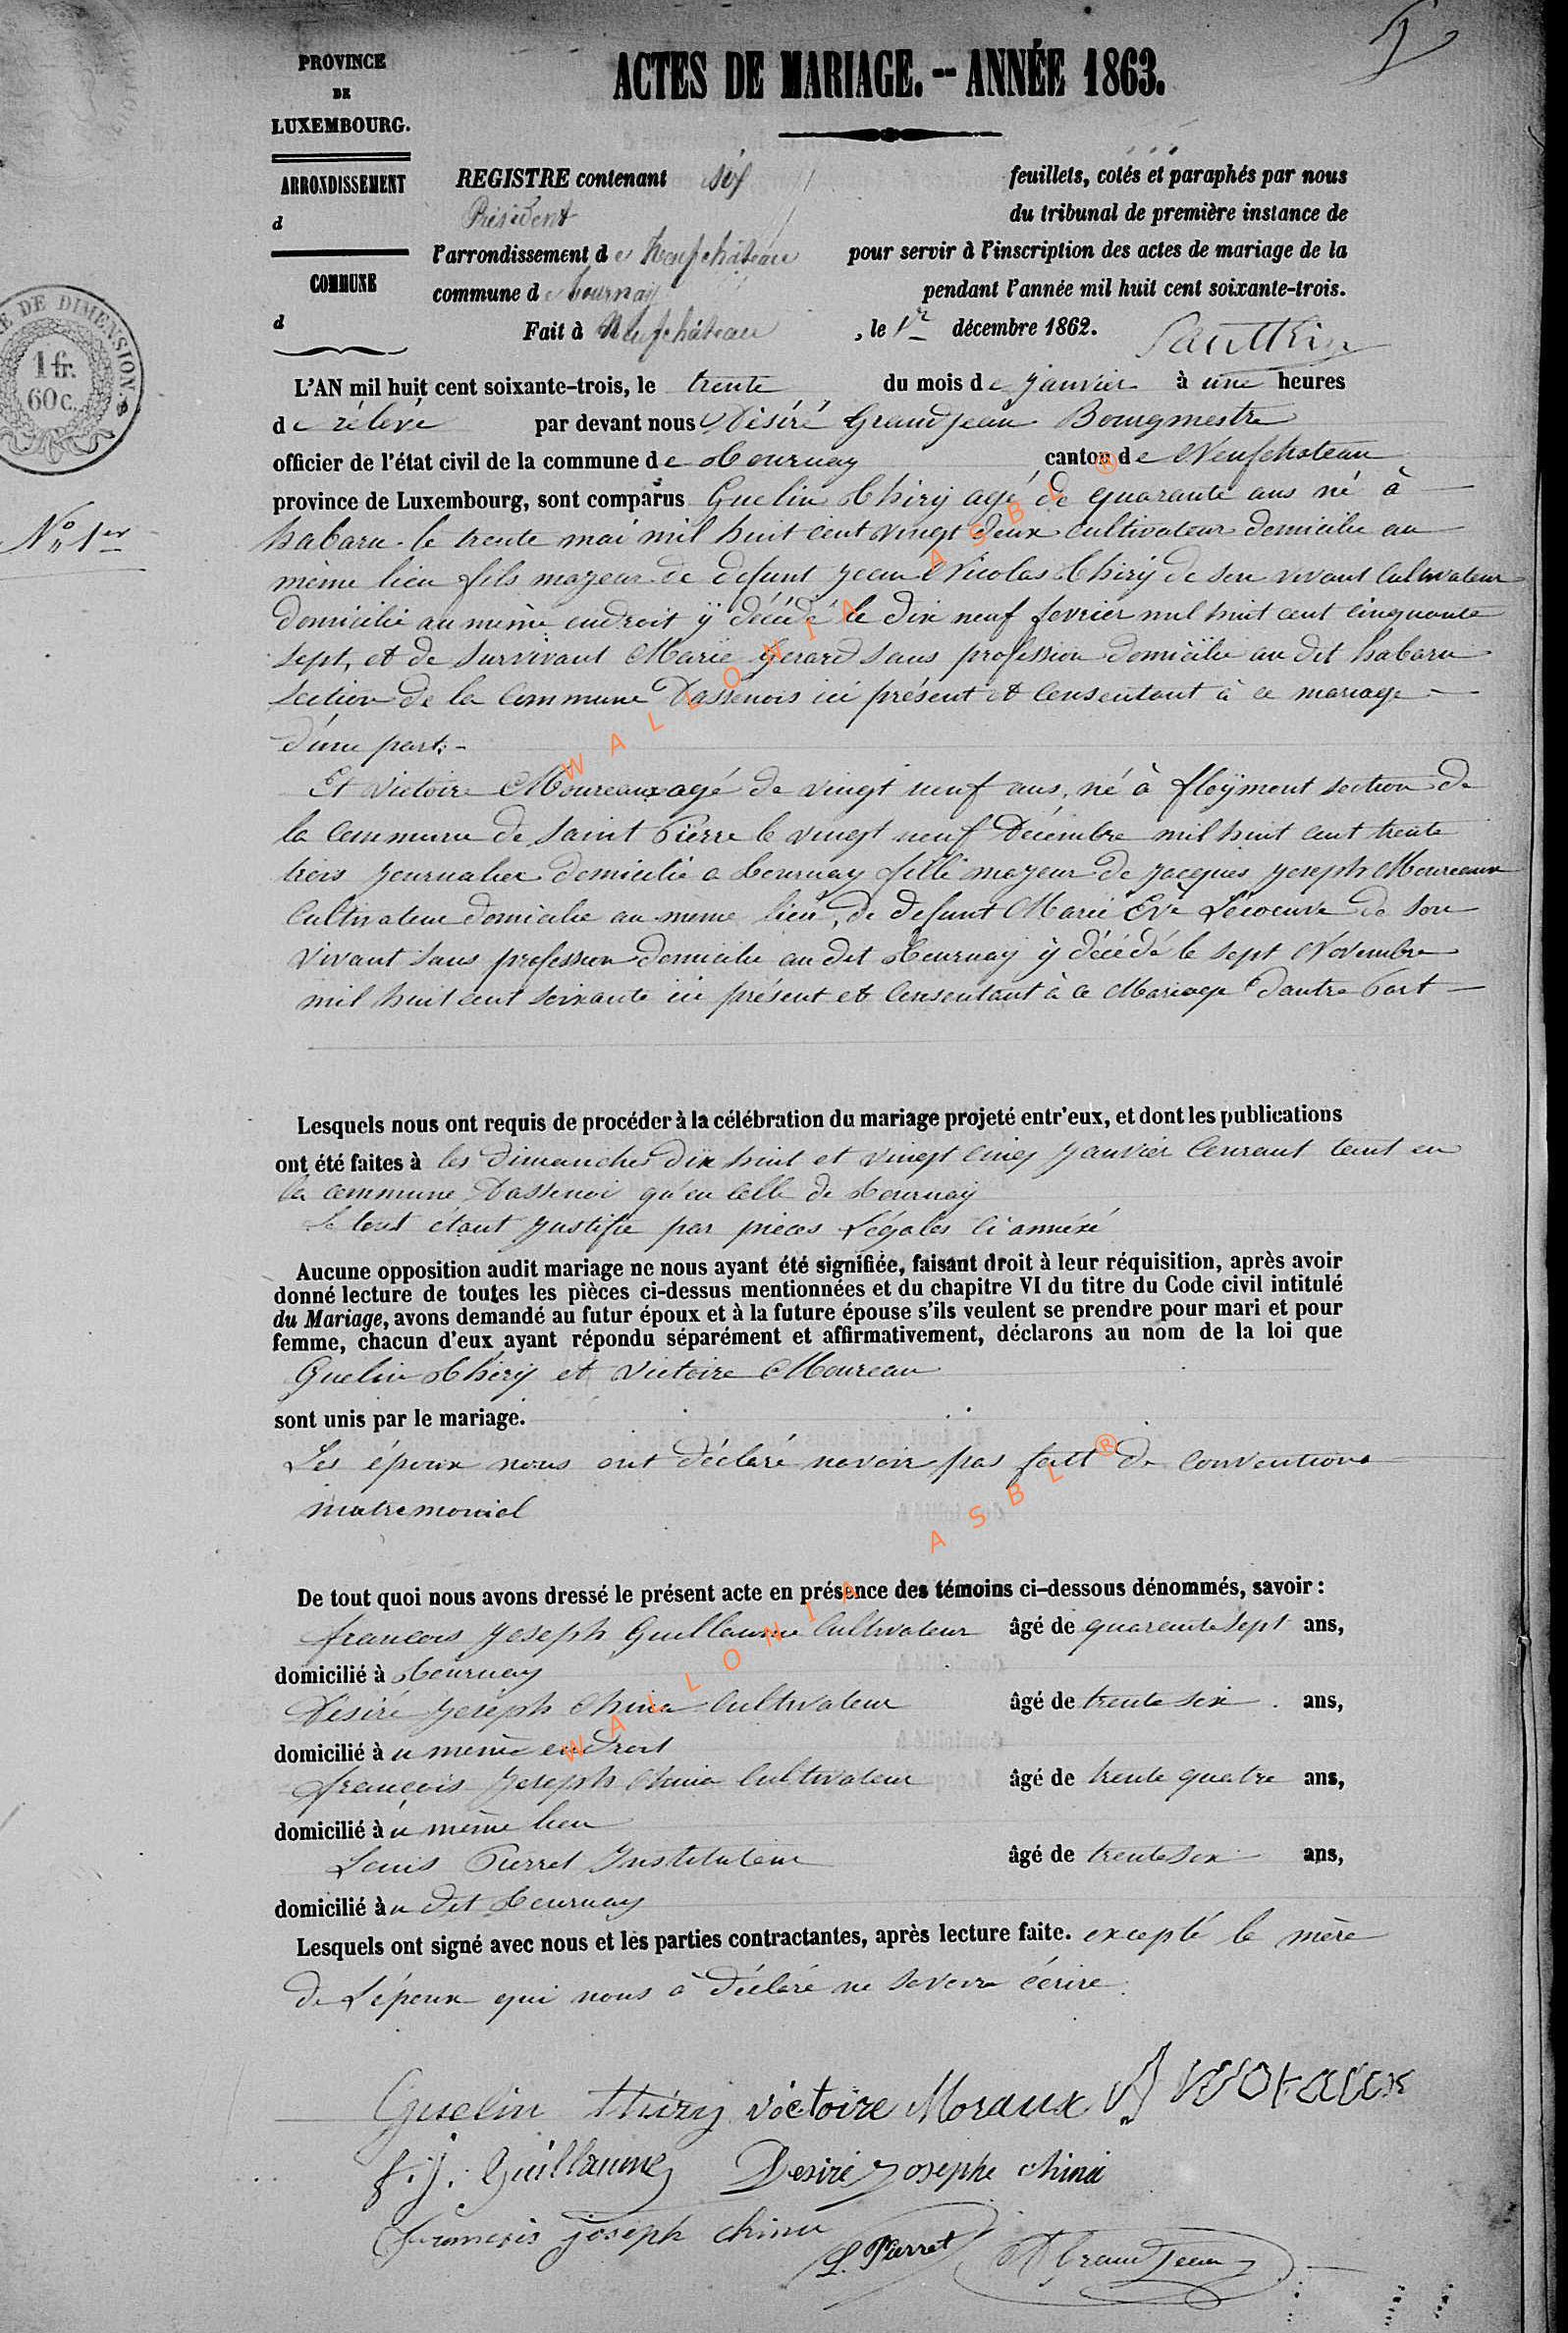 PROVINCE
DE
LUXEMBOURG.
ACTES DE MARIAGE.-- ANNÉE 1863.
ARRONDISSEMENT
d
COMMUNE
d
REGISTRE contenant six feuillets, cotés et paraphés par nous
Président du tribunal de première instance de
l'arrondissement de Neufchâteau pour servir à l'inscription des actes de mariage de la
commune de Tournay pendant l'année mil huit cent soixante-trois.
Fait à Neufchâteau, le 1r décembre 1862.
E DE DIMENSION.
1 fr.
60 c.
L'AN mil huit cent soixante-trois, le trente du mois de janvier à une heures
de rélévé par devant nous Désiré Grandjean Bourgmestre
officier de l'état civil de la commune de Tournay canton de Neufchateau
province de Luxembourg, sont comparus Guelin Thiry agé de quarante ans né à
No 1er
habaru le trente mai mil huit cent vingt deux cultivateur domicilie au
même lieu fils majeur de defunt Jean Nicolas Thiry de son vivant Cultivateur
domicilie au même endroit ÿ décédé le dix neuf fevrier mil huit cent cinquante
sept, et de Survivant Marie Gerard sans profession domicilie au dit habaru
section de la Commune Dassenois ici présent et Consentant à ce mariage
d'une part.
Et Victoire Moureaux agé de vingt neuf ans, né à fleÿmont section de
la Commune de Saint Pierre le vingt neuf Décembre mil huit cent trente
trois Journalier domicilie a Tournay fille majeur de Jacques Joseph Moureaux
Cultivateur domicilie au meme lieu, de defunt Marie Eve Lecoeuve de son
vivant sans profession domicilie au dit Tournay ÿ décédé le sept Novembre
mil huit cent soixante ici présent et Consentant à ce Mariage dautre Part
Lesquels nous ont requis de procéder à la célébration du mariage projeté entr'eux, et dont les publications
ont été faites à les dimanches dix huit et vingt cinq Janvier Courant tant en
la commune Dassenoi qu'en celle de Tournay
le tout étant Justifie par pieces Légales ci annéxé
Aucune opposition audit mariage ne nous ayant été signifiée, faisant droit à leur réquisition, après avoir
donné lecture de toutes les pièces ci-dessus mentionnées et du chapitre VI du titre du Code civil intitulé
du Mariage, avons demandé au futur époux et à la future épouse s'ils veulent se prendre pour mari et pour
femme, chacun d'eux ayant répondu séparément et affirmativement, déclarons au nom de la loi que
Guelin Thiry et Victoire Moureau
sont unis par le mariage.
Les époux nous ont déclaré navoir pas fait de Conventions
matremoniel
De tout quoi nous avons dressé le présent acte en présence des témoins ci-dessous dénommés, savoir :
francois Joseph Guillaume Cultivateur âgé de quarente sept ans,
domicilié à Tournay
Désiré Joseph China Cultivateur âgé de trente six ans,
domicilié à u meme endroit
françois Joseph China Cultivateur âgé de trente quatre ans,
domicilié à u même lieu
Louis Pierret Instituteur âgé de trente six ans,
domicilié à u dit Tournay
Lesquels ont signé avec nous et les parties contractantes, après lecture faite. excepté le mère
de L'époux qui nous à déclaré ne savoir écrire.
Guelin thiry victoire Moraux
f. j. Guillaume Desiré Josephe china
francois joseph china
L. Pierret D Grandjean
WALLONIA ASBL ®
WALLONIA ASBL ®